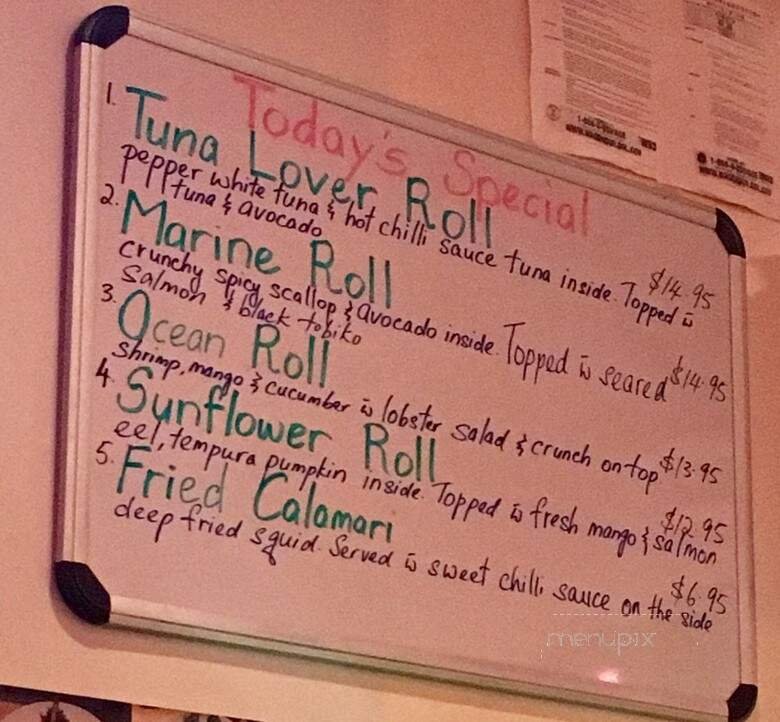 Today's Special
1. Tuna Lover Roll $14.95
pepper white tuna & hot chilli sauce tuna inside. Topped w̄
tuna & avocado
2. Marine Roll $14.95
crunchy spicy scallop & avocado inside. Topped w̄ seared
salmon & black tobiko
3. Ocean Roll $13.95
shrimp, mango & cucumber w̄ lobster salad & crunch on top
4. Sunflower Roll $12.95
eel, tempura pumpkin inside. Topped w̄ fresh mango & salmon
5. Fried Calamari $6.95
deep fried squid. Served w̄ sweet chilli sauce on the side
menupix